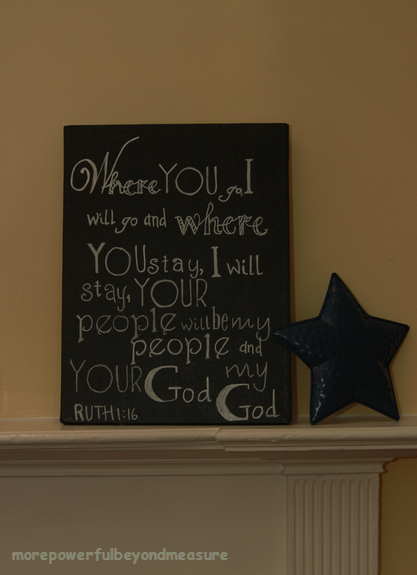 Where YOU go I
will go and where
YOU stay, I will
stay, YOUR
people will be my
people and
YOUR God my
God
RUTH 1:16
morepowerfulbeyondmeasure